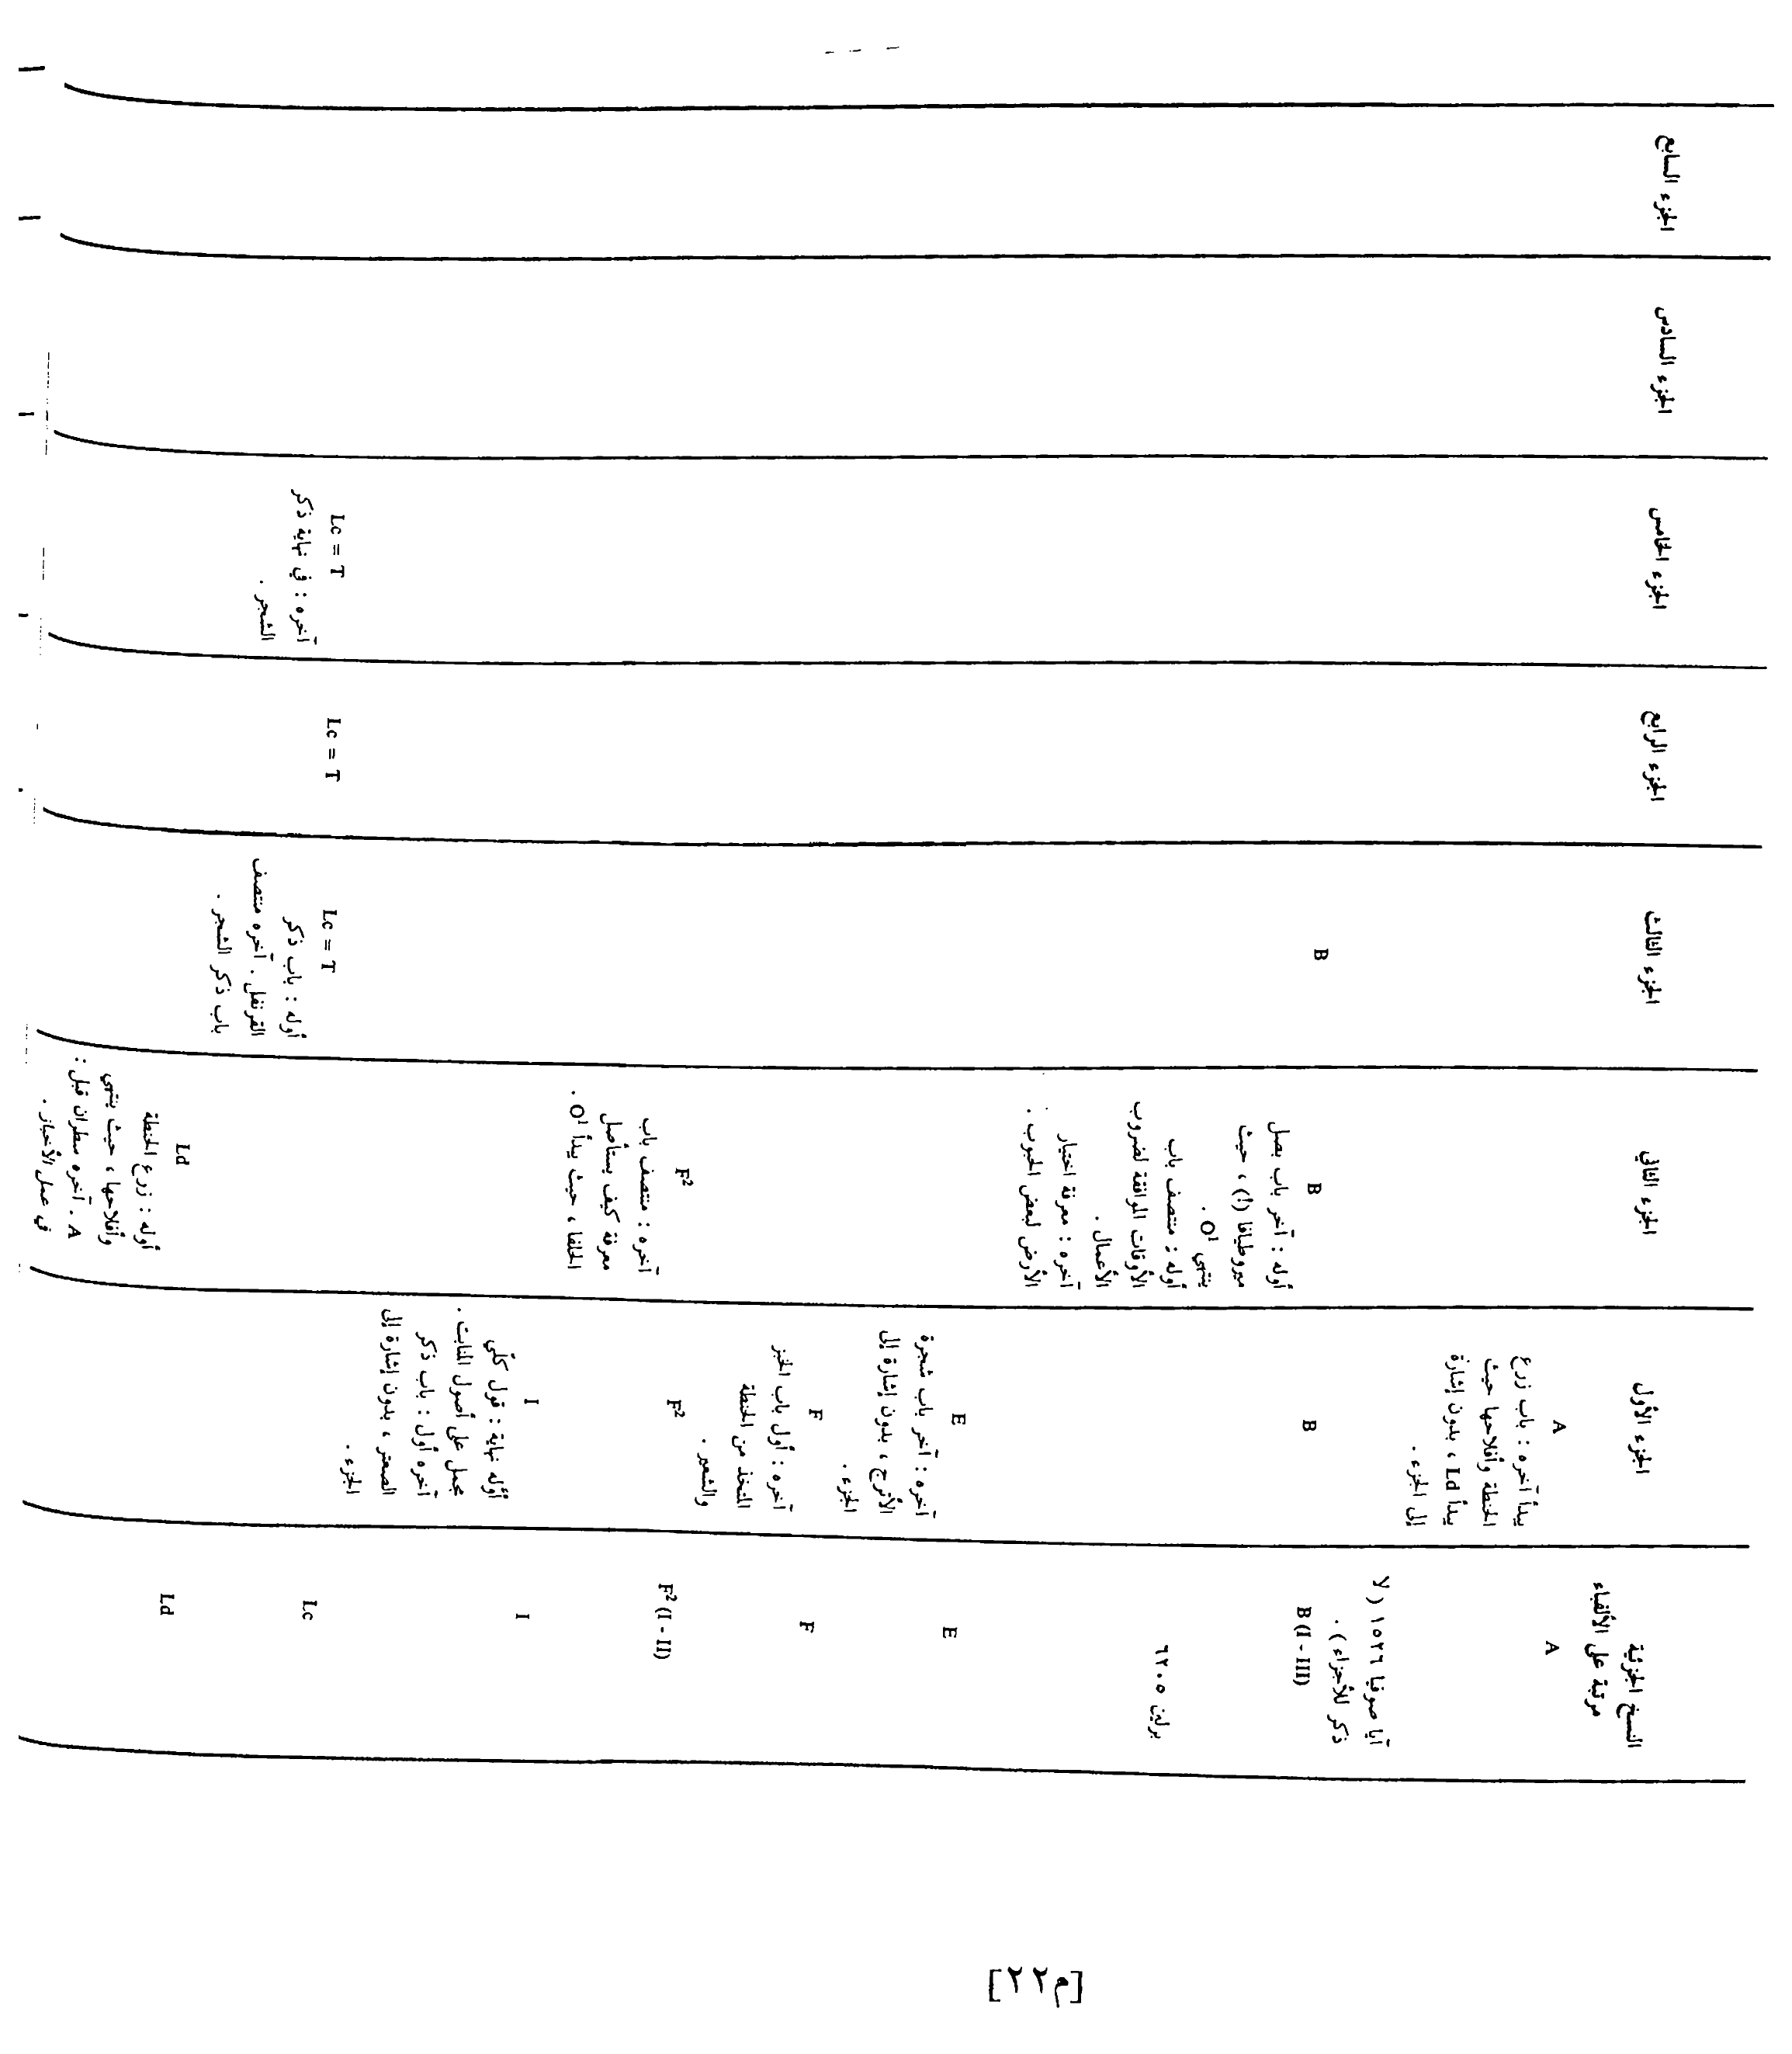 النسخ الجزئية
مرتبة على الألفباء
الجزء الأول
الجزء الثاني
الجزء الثالث
الجزء الرابع
الجزء الخامس
الجزء السادس
الجزء السابع
A
A
يبدأ آخره : باب زرع
الحنطة وأفلاحها حيث
يبدأ Ld ، بدون إشارة
إلى الجزء .
آيا صوفيا ١٥٢٦ ( لا
ذكر للأجزاء ) .
B (I - III)
B
B
أوله : آخر باب بصل
ميروطياقا (أ) ، حيث
ينتهي O¹ .
B
برلين ٦٢٠٥
أوله : منتصف باب
الأوقات الموافقة لضروب
الأعمال .
آخره : معرفة اختيار
الأرض لبعض الحبوب .
E
E
آخره : آخر باب شجرة
الأترج ، بدون إشارة إلى
الجزء .
F
F
آخره : أول باب الخبز
المتخذ من الحنطة
والشعير .
F² (I - II)
F²
F²
آخره : منتصف باب
معرفة كيف يستأصل
الحلفا ، حيث يبدأ O¹ .
I
I
أوّله نهاية : قول كلّي
مجمل على أصول المنابت .
آخره أول : باب ذكر
الصعتر ، بدون إشارة إلى
الجزء .
Lc
Lc = T
أوله : باب ذكر
القرنفل . آخره منتصف
باب ذكر الشجر .
Lc = T
Lc = T
آخره : في نهاية ذكر
الشجر .
Ld
Ld
أوله : زرع الحنطة
وأفلاحها ، حيث ينتهي
A . آخره سطران قبل :
في عمل الأخباز .
[م٢٢]